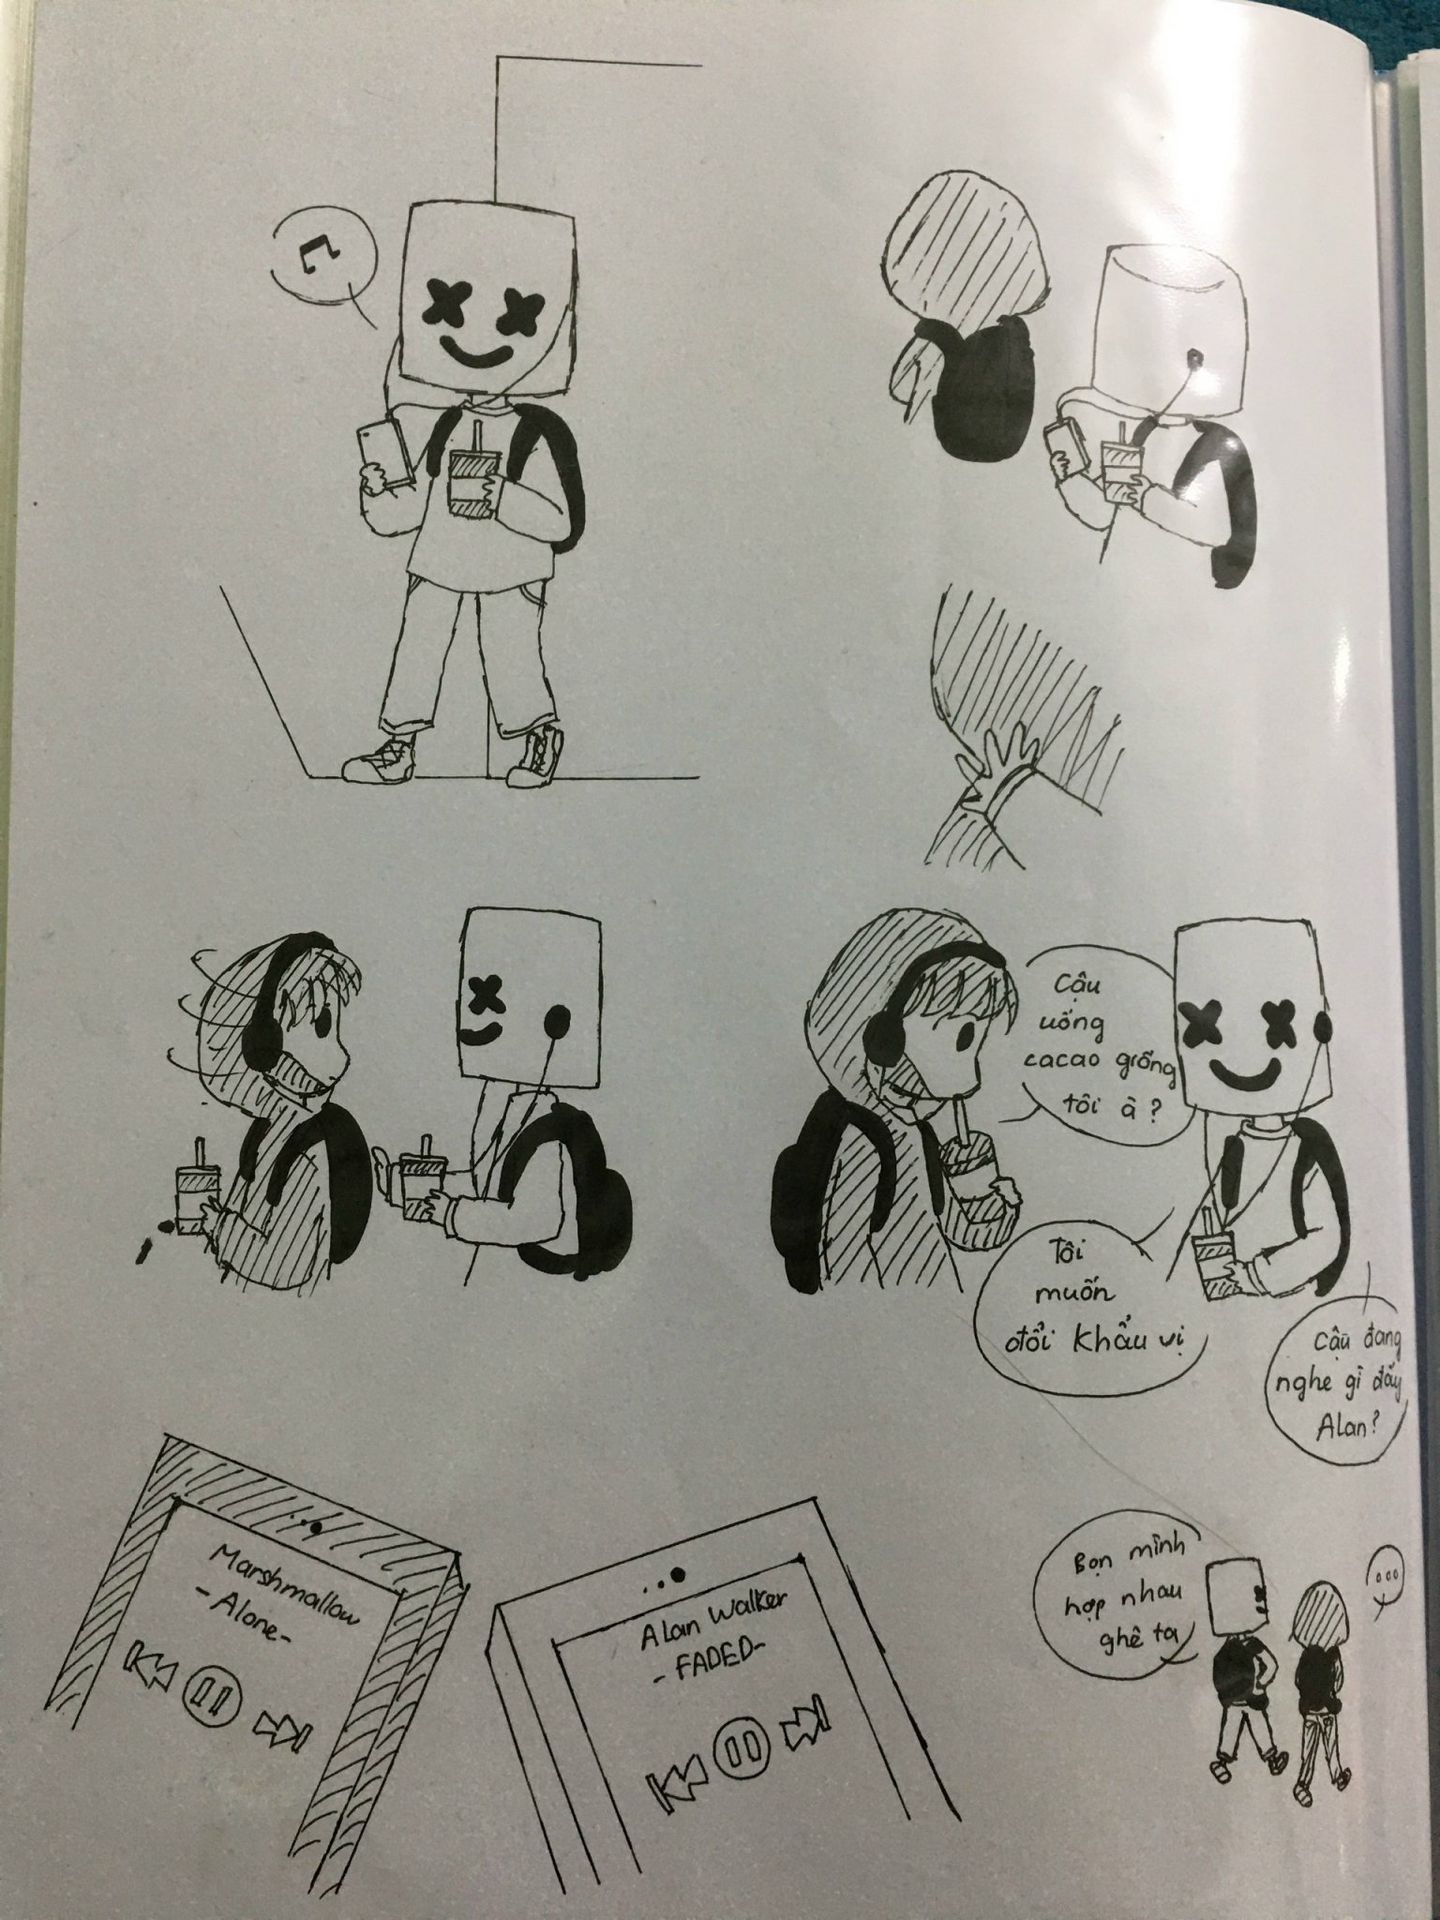 Cậu
uống
cacao giống
tôi à?
Tôi
muốn
đổi khẩu vị
Cậu đang
nghe gì đấy
Alan?
Marshmallow
-Alone-
Alan Walker
-FADED-
Bọn mình
hợp nhau
ghê ta
...